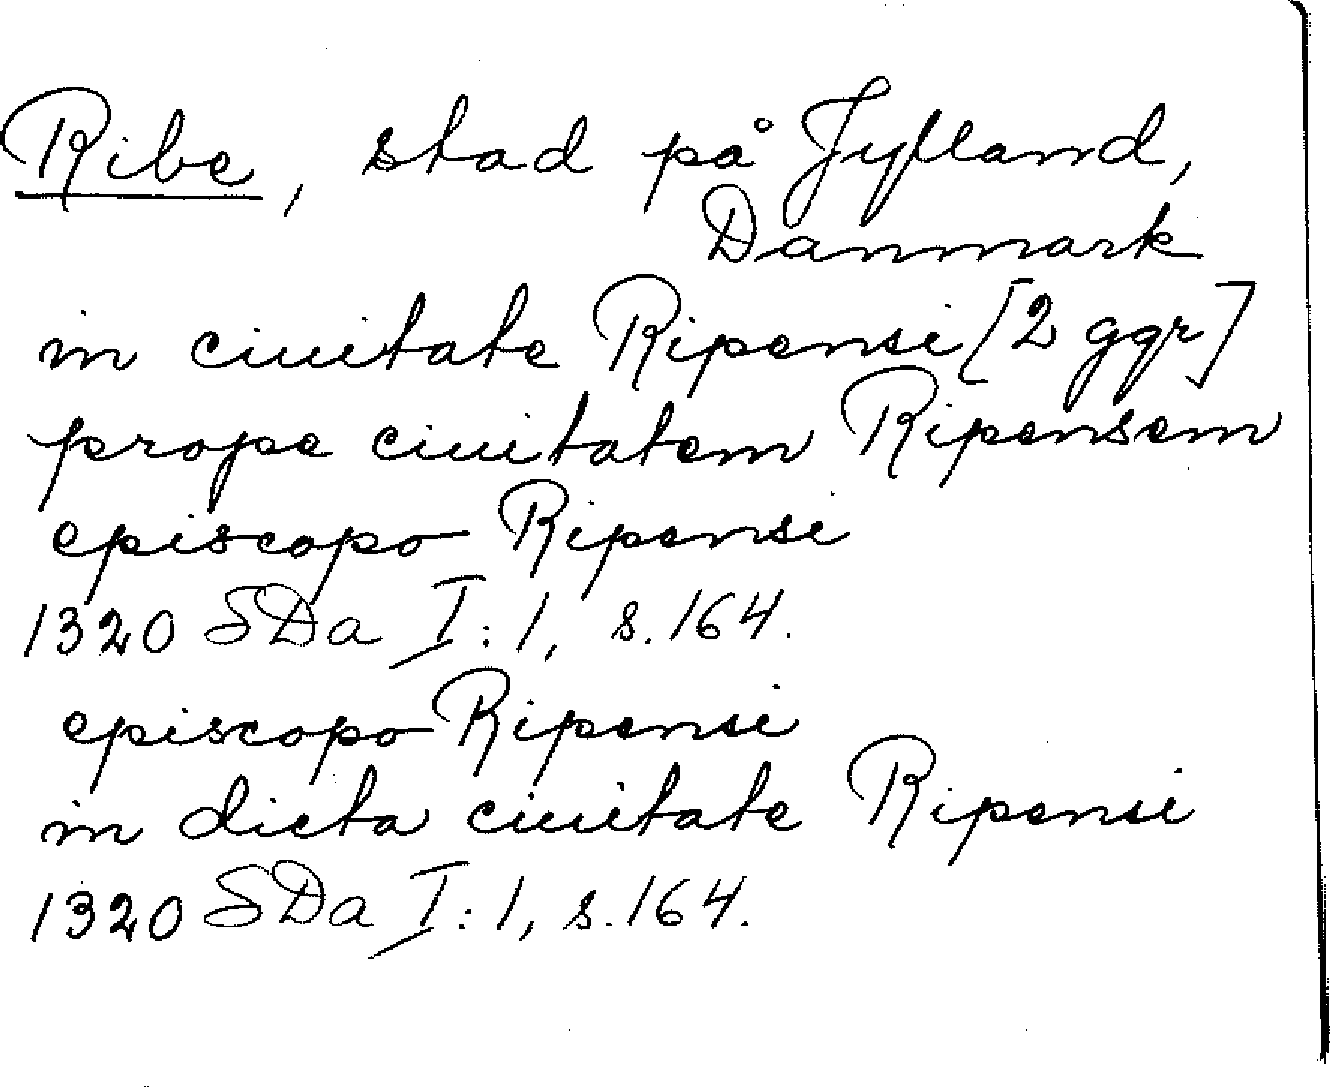 Ribe, stad på Jylland,
Danmark
in ciuitate Ripensi [2 ggr]
prope ciuitatem Ripensem
episcopo Ripensi
1320 SDa I:1, s. 164.
episcopo Ripensi
in dicta ciuitate Ripensi
1320 SDa I:1, s. 164.